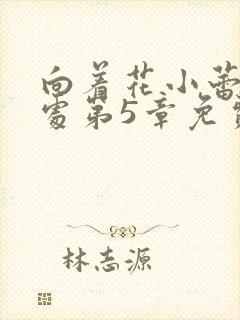 向着花小蕾
处第5章免费
林志源